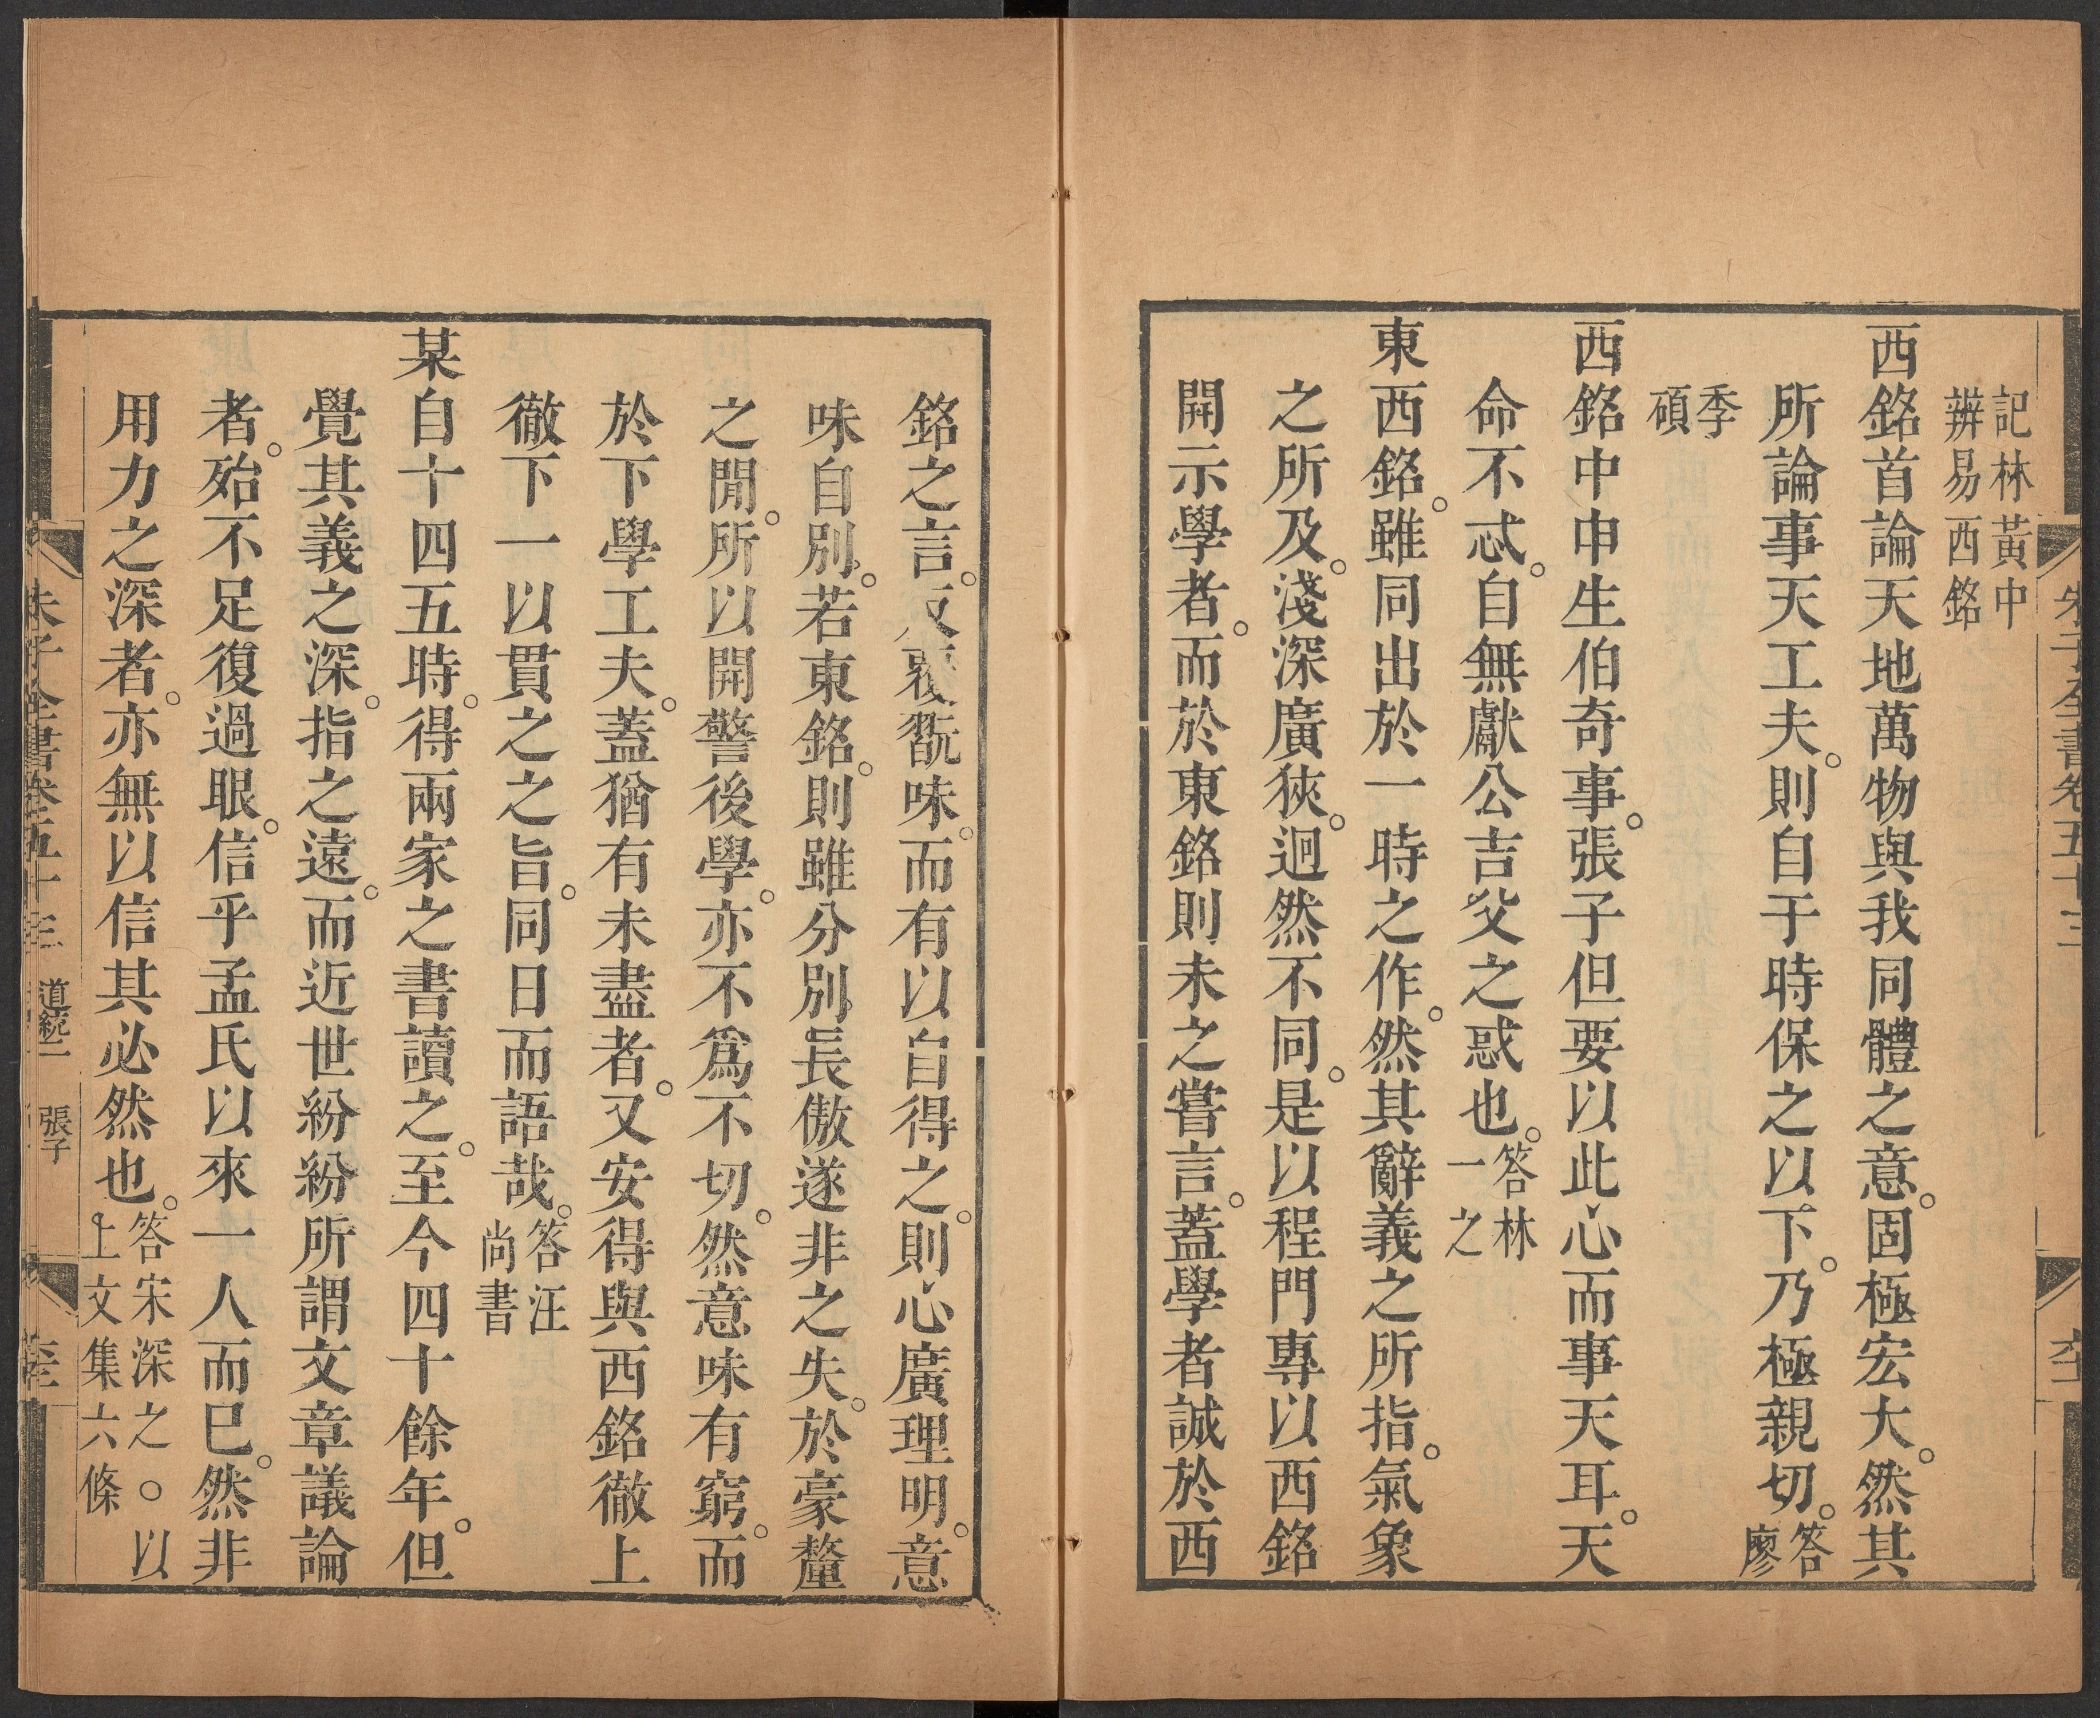 記林黃中
辨易西銘
西銘首論天地萬物與我同體之意。固極宏大。然其
所論事天工夫。則自于時保之以下。乃極親切。答廖
季碩
西銘中申生伯奇事。張子但要以此心而事天耳。天
命不忒。自無獻公吉父之惑也。答林一之
東西銘。雖同出於一時之作。然其辭義之所指。氣象
之所及。淺深廣狹。迥然不同。是以程門專以西銘
開示學者。而於東銘則未之嘗言。蓋學者誠於西
銘之言。反覆翫味。而有以自得之。則心廣理明。意
味自別。若東銘。則雖分別長傲遂非之失。於豪釐
之閒。所以開警後學。亦不爲不切。然意味有窮。而
於下學工夫。蓋猶有未盡者。又安得與西銘徹上
徹下一以貫之之旨。同日而語哉。答汪尚書
某自十四五時。得兩家之書讀之。至今四十餘年。但
覺其義之深。指之遠。而近世紛紛所謂文章議論
者。殆不足復過眼。信乎孟氏以來一人而已。然非
用力之深者。亦無以信其必然也。答宋深之〇以上文集六條
朱子全書卷五十三 道統二 張子